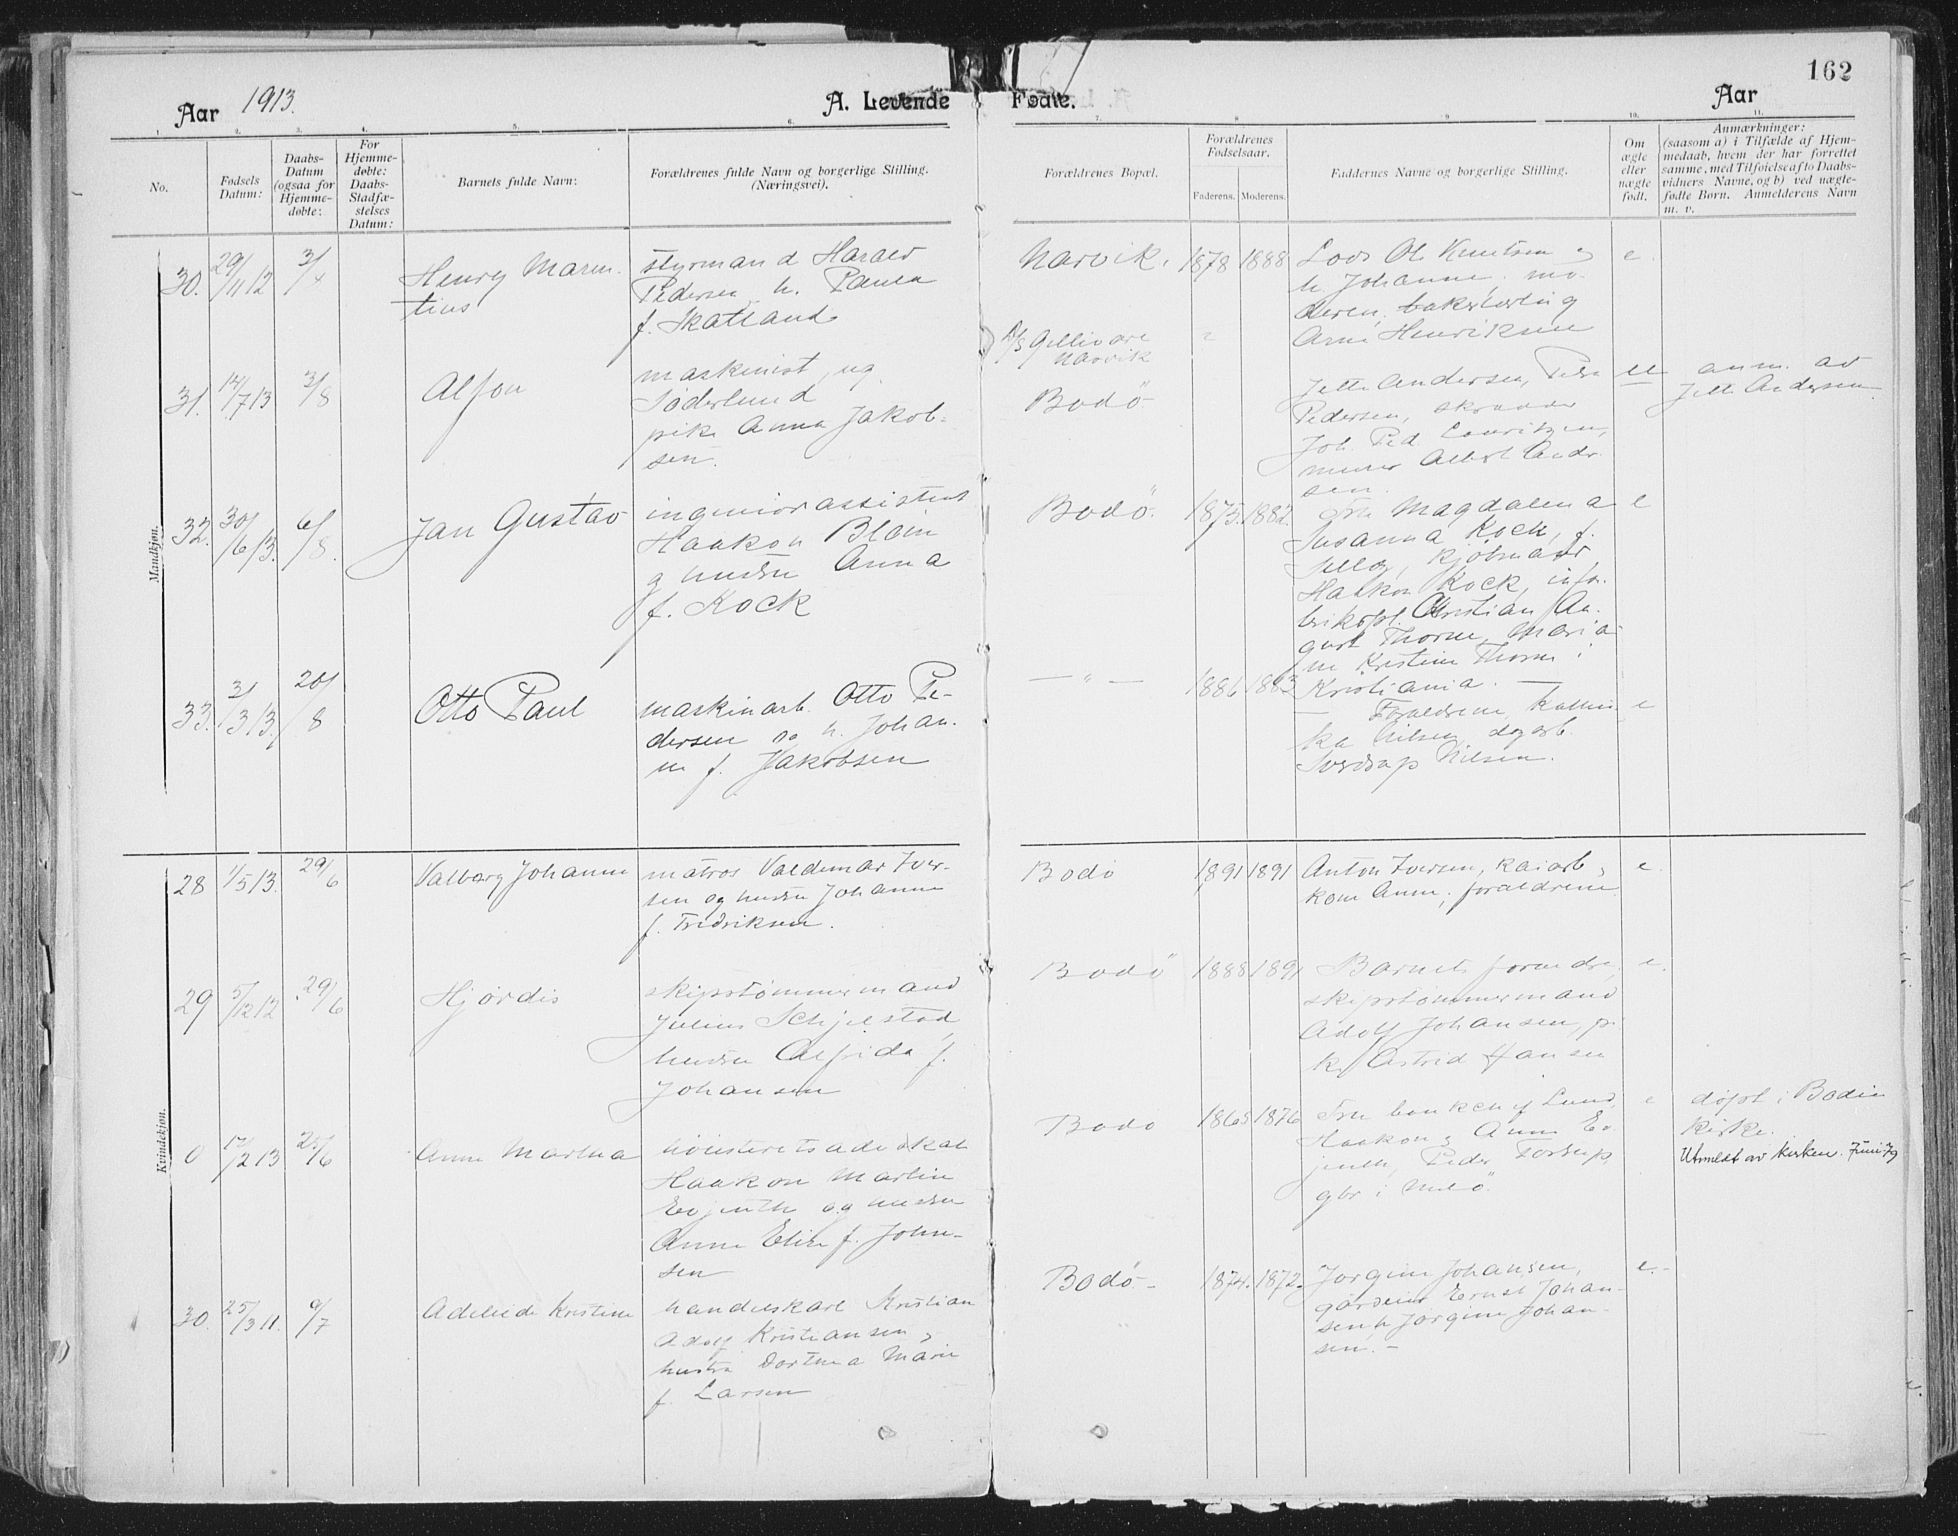 162
Aar 1913.
A. Levende Fødte.
Aar
1. 2. 3. 4. 5. 6. 7. 8. 9. 10. 11.
No.
Fødsels
Datum:
Daabs-
Datum
(ogsaa for
Hjemme-
døbte:
For
Hjemme-
døbte:
Daabs-
Stadfæ-
stelses
Datum:
Barnets fulde Navn:
Forældrenes fulde Navn og borgerlige Stilling.
(Næringsvei).
Forældrenes Bopæl.
Forældrenes
Fødselsaar.
Faderens. Moderens.
Faddernes Navne og borgerlige Stilling.
Om
ægte
eller
nægte
født.
Anmærkninger:
(saasom a) i Tilfælde af Hjem-
medaab, hvem der har forrettet
samme, med Tilføielse af to Daabs-
vidners Navne, og b) ved nægte-
fødte Børn. Anmelderens Navn
m. v.
Mandkjøn.
30.
29/11 12
Henry Maren-
tius
styrmand Harald
Pedersen h. Paula
f. Skatland
Narvik.
1878 1888
Lods Ol. Knutsen
h. Johanne. mo-
deren,
Arne Henriksen
e.
31.
14/7 13
3/8
Alfon
maskinist ug.
Søderlund
pike Anna Jakob-
sen.
Gellivare
Narvik
Bodö
Jette Andersen,
Pedersen,
Joh. Ped. Lauritzen,
murer Albert Andr.
sen.
u
anm. av
Jette Andersen
32.
30/6 13.
6/8.
Jan Gustav
ingeniørassistent
Haakon Blom
g hustru Anna
f. Kock
Bodö.
1875. 1882.
Fru Magdalena
Susanna Kock, f.
Haakon Kock,
Kristian Au-
gust Thorne, Maria-
ne Kristine Thorne i
Kristiania.
e
33.
3/3 13.
20/8
Otto Paul
maskinarb. Otto Pe-
dersen og h. Johan-
ne f. Jakobsen
— " —
1886 1883
Forældrene,
Nilsen
Sverdrup Nilsen.
e
Kvindekjøn.
28
1/5 13.
29/6
Valborg Johanne
matros Valdemar Iver-
sen og hustru Johanne
f. Fredriksen.
Bodö
1891 1891
Anton Iversen, kaiarb.
kone Anne, forældrene
e.
29
5/12 12
29/6
Hjørdis
skipstømmermand
Julius Schjelstad
hustru Alfrida f.
Johansen
Bodö
1888 1891
Barnets forældre,
skipstømmermand
Adolf Johansen, pi-
ke Astrid Hansen
e.
0
17/2 13
25/6
Anne Martha
høiesteretsadvokat
Haakon Martin
Evjenth og hustru
Anne Elise f. John-
sen
Bodö
1865 1876
Fru
Haakon g Anne Ev-
jenth, Peder
gbr i
e
døpt i Bodin
kirke.
Utmeldt av kirken. Juni 79
30.
25/3 11.
9/7
Adeleide Kristine
handelskarl Kristian
Adolf Kristiansen,
hustru Dorthea Marie
f. Larsen
Bodö
1874. 1872.
Jørgine Johansen,
gårdeier Ernst Johan-
sen h Jørgine Johan-
sen. -
e.-